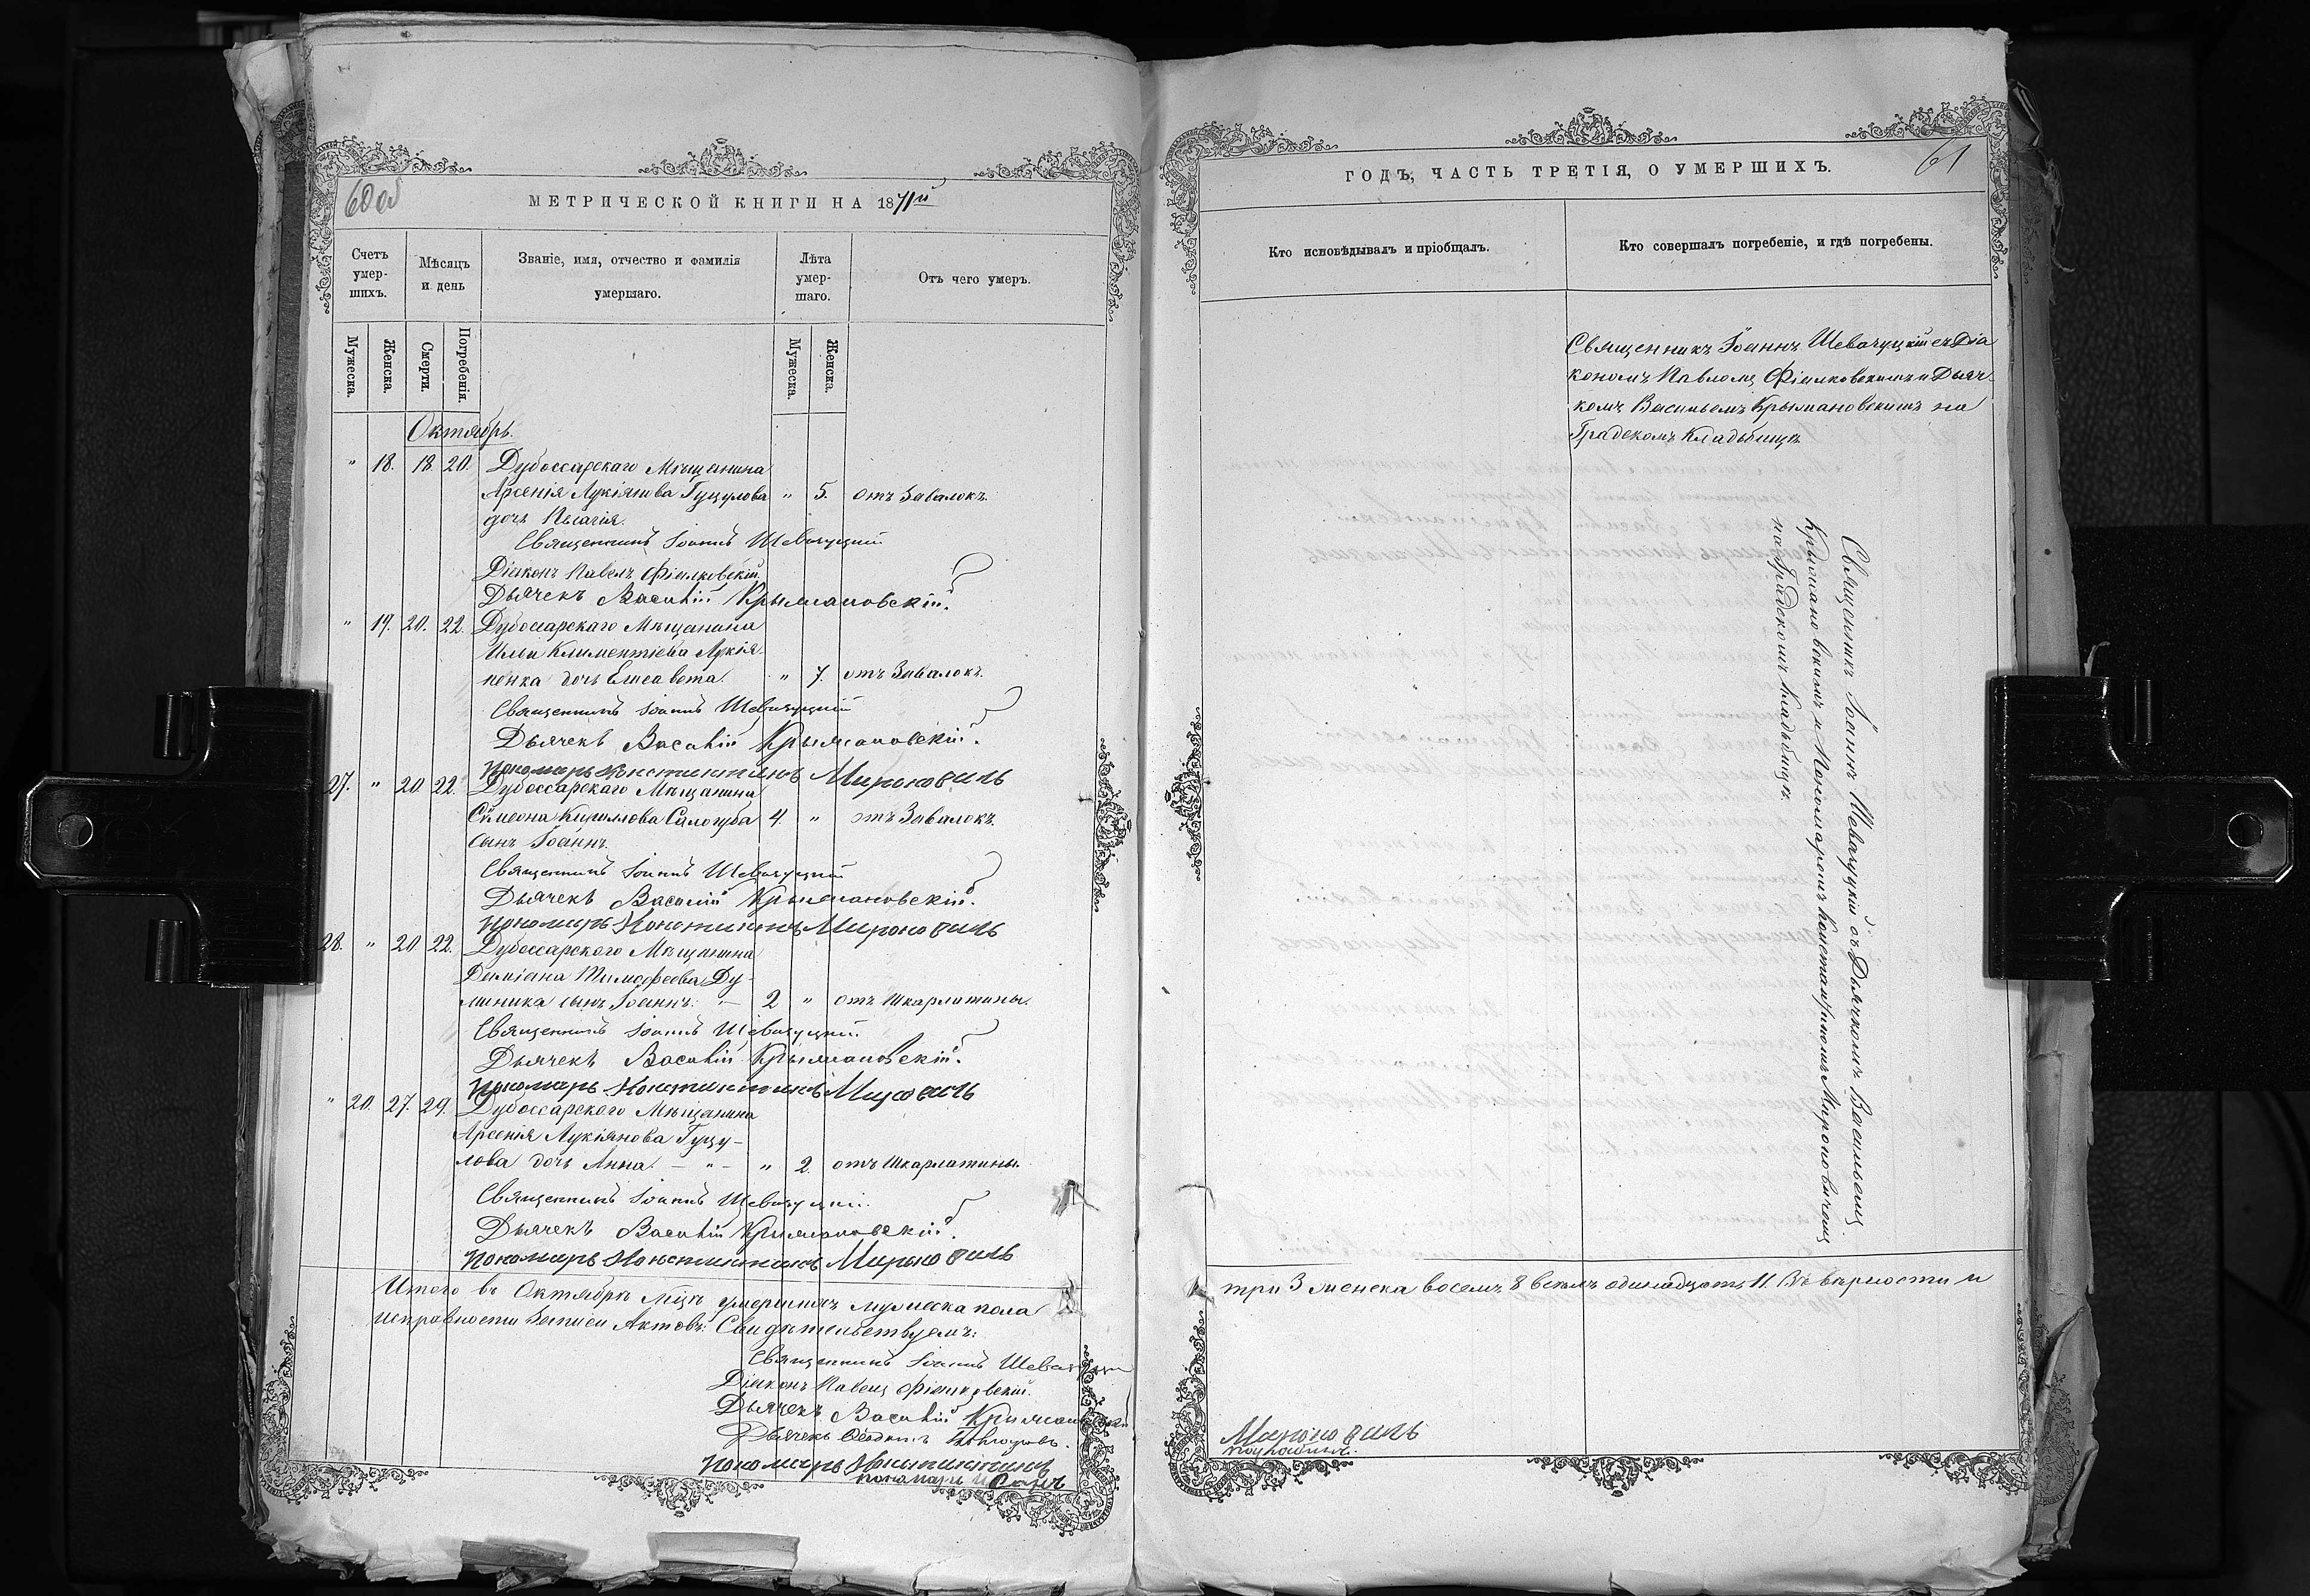 60об
МЕТРИЧЕСКОЙ КНИГИ НА 1871й
Счетъ умер-шихъ.
Мѣсяцъ и день
Званіе, имя, отчество и фамилія умершаго.
Лѣта умер-шаго.
Отъ чего умеръ.
Мужеска.
Женска.
Смерти.
Погребенія.
Мужеска.
Женска.
Октябрь.
" 18. 18. 20. Дубоссарскаго Мѣщанина
Арсенія Лукіянова Гуцулова " 5. отъ Завалокъ.
дочь Пелагія.
Священникъ Іоаннъ Шевачуцкій
Діаконъ Павелъ Фіалковскій.
Дьячекъ Василій Крыжановскій.
" 19. 20. 22. Дубоссарскаго Мѣщанина
Ильи Климентіева Лукія-
ненка дочь Елисавета. " 7. отъ Завалокъ.
Священникъ Іоаннъ Шевачуцкій
Дьячекъ Василій Крыжановскій.
Пономарь Константинъ Мироновичъ
27. " 20. 22. Дубоссарскаго Мѣщанина
Симеона Кириллова Салогуба 4. " отъ Завалокъ.
сынъ Іоаннъ.
Священникъ Іоаннъ Шевачуцкій
Дьячекъ Василій Крыжановскій.
Пономарь Константинъ Мироновичъ
28. " 20 22. Дубоссарского Мѣщанина
Деміана Тимофеева Ду-
миника сынъ Іоаннъ. — 2 " отъ Шкарлатины.
Священникъ Іоаннъ Шевачуцкій.
Дьячекъ Василій Крыжановскій.
Пономарь Константинъ Мироновичъ
" 20. 27. 29. Дубоссарского Мѣщанина
Арсенія Лукіянова Гуцу-
лова дочь Анна. — " — " 2. отъ Шкарлатины.
Священникъ Іоаннъ Шевачуцкій.
Дьячекъ Василій Крыжановскій.
Пономарь Константинъ Мироновичъ
Итого въ Октябрѣ мцѣ умершихъ мужеска пола
исправности записи Актовъ: Свидѣтельствуемъ:
Священникъ Іоаннъ Шевачуцкій
Діаконъ Павелъ Фіалковскій.
Дьячекъ Василій Крыжановскій
Дьячекъ
Пономарь Константинъ
пономарь
ГОДЪ, ЧАСТЬ ТРЕТІЯ, О УМЕРШИХЪ.
61
Кто исповѣдывалъ и пріобщалъ.
Кто совершалъ погребеніе, и гдѣ погребены.
Священникъ Іоаннъ Шевачуцкій съ Діа
кономъ Павломъ Фіалковскимъ и Дьяч-
комъ Васильемъ Крыжановскимъ на
Градскомъ Кладьбищѣ
Священникъ Іоаннъ Шевачуцкій съ Дьячкомъ Васильемъ
Крыжановскимъ и Пономаромъ Константиномъ Мироновичемъ
на Градскомъ Кладьбищѣ.
три 3 женска восемь 8 всѣхъ одинадцать 11. Въ вѣрности и
Мироновичъ